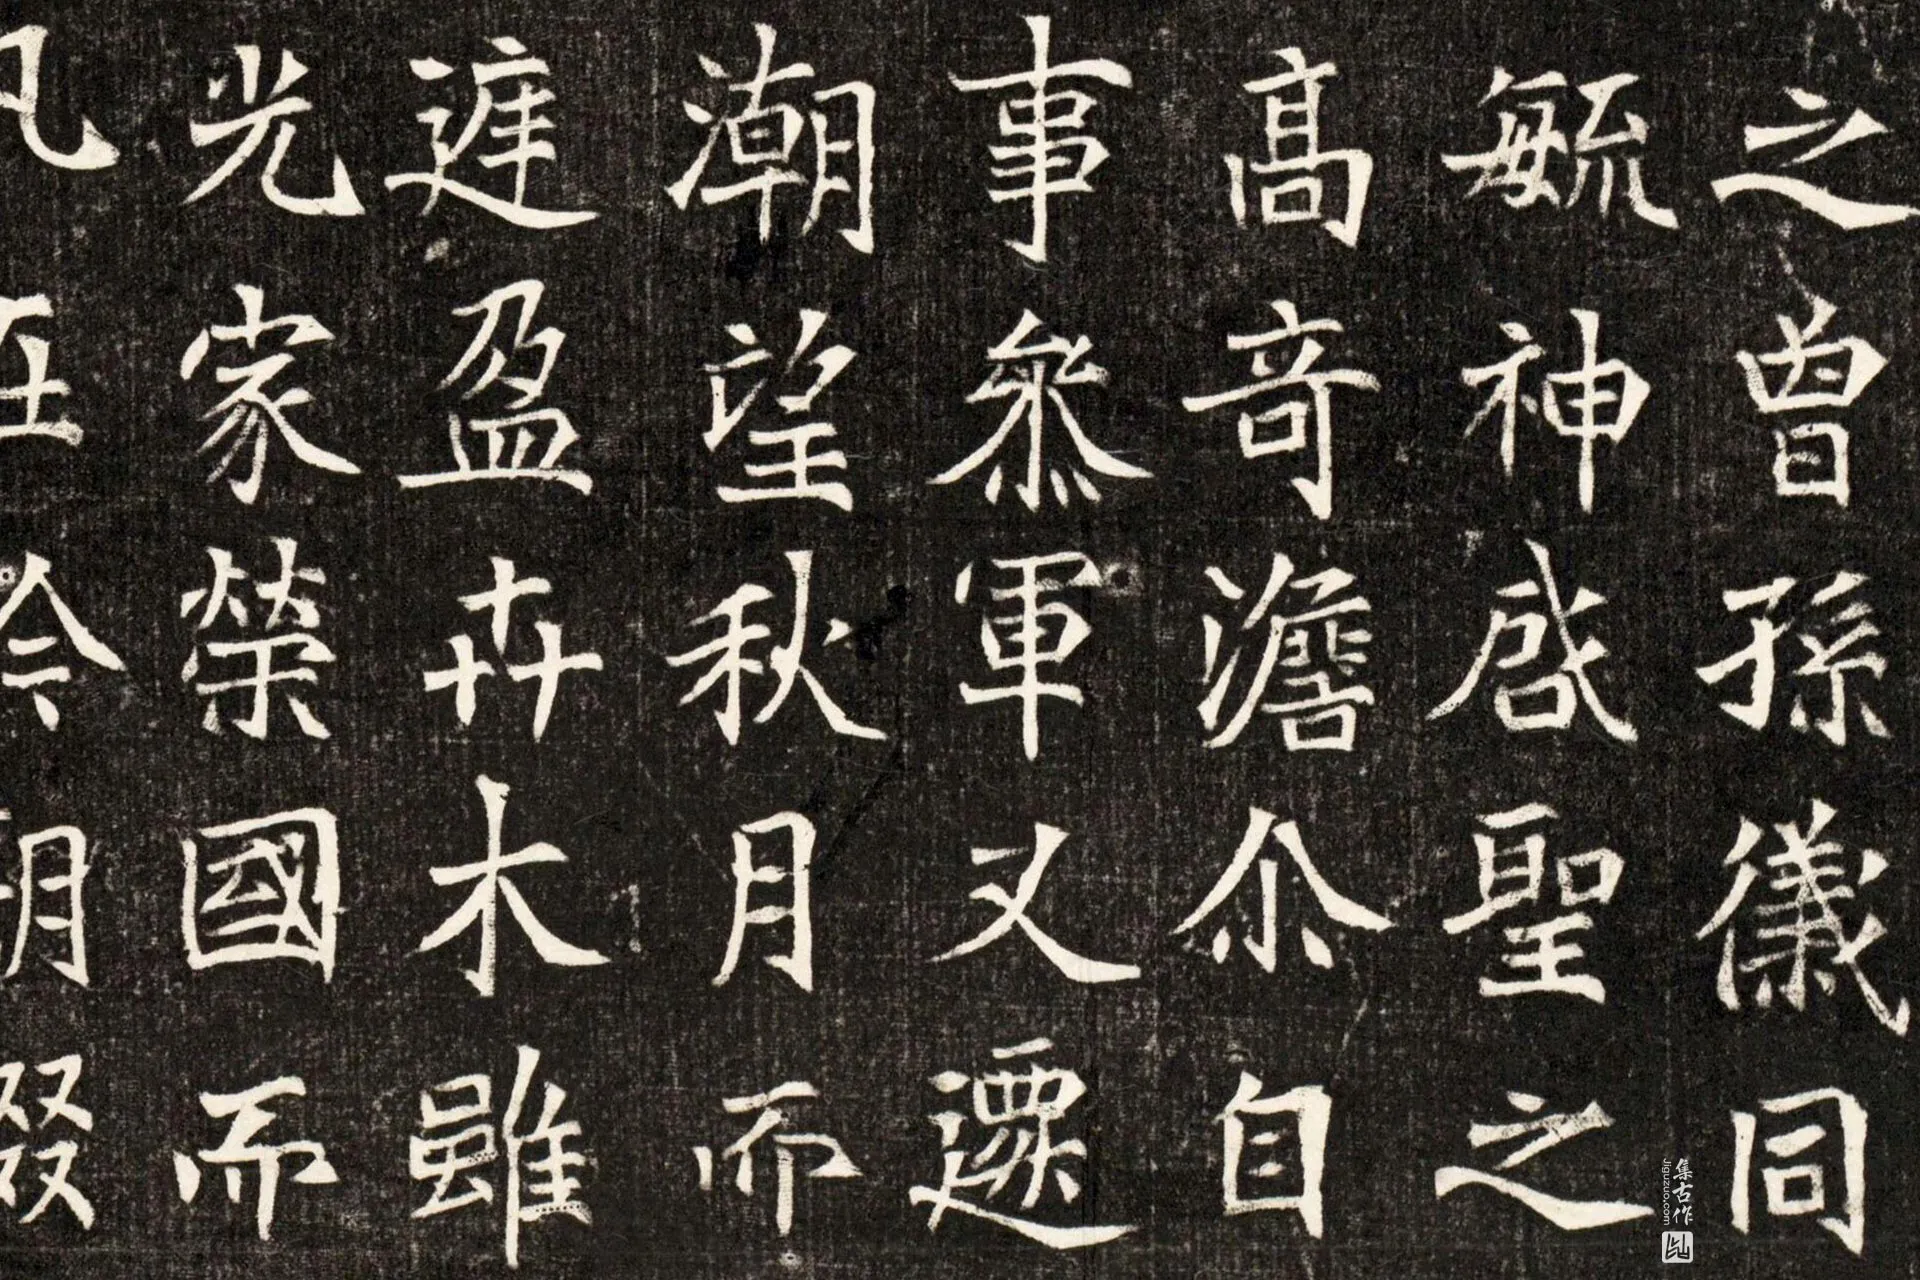 之曾孫儀同
毓神啓聖之
高奇澹尒自
事叅軍又遷
潮望秋月而
遅盈卉木雖
光家榮國而
集古作
jiguzuo.com